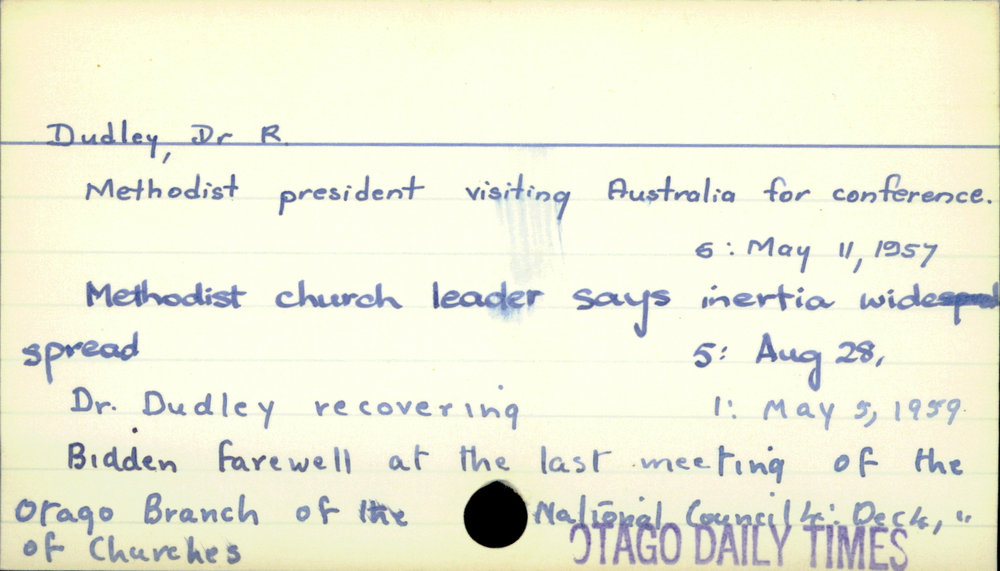 Dudley, Dr R.
Methodist president visiting Australia for conference.
6: May 11, 1957
Methodist church leader says inertia wide
spread 5: Aug 28,
Dr. Dudley recovering 1: May 5, 1959.
Bidden farewell at the last meeting of the
Otago Branch of the National Council 4: Dec 4, "
of Churches
OTAGO DAILY TIMES